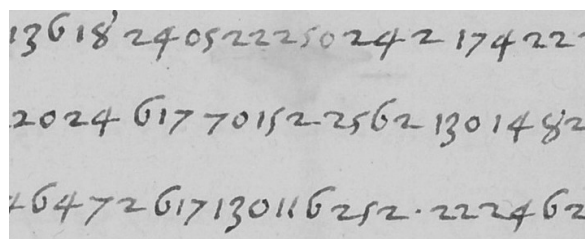 13618'24052225024 2 174 22
2024 617 70152 2562 130 1482
4647 2 617130116252·2224 62